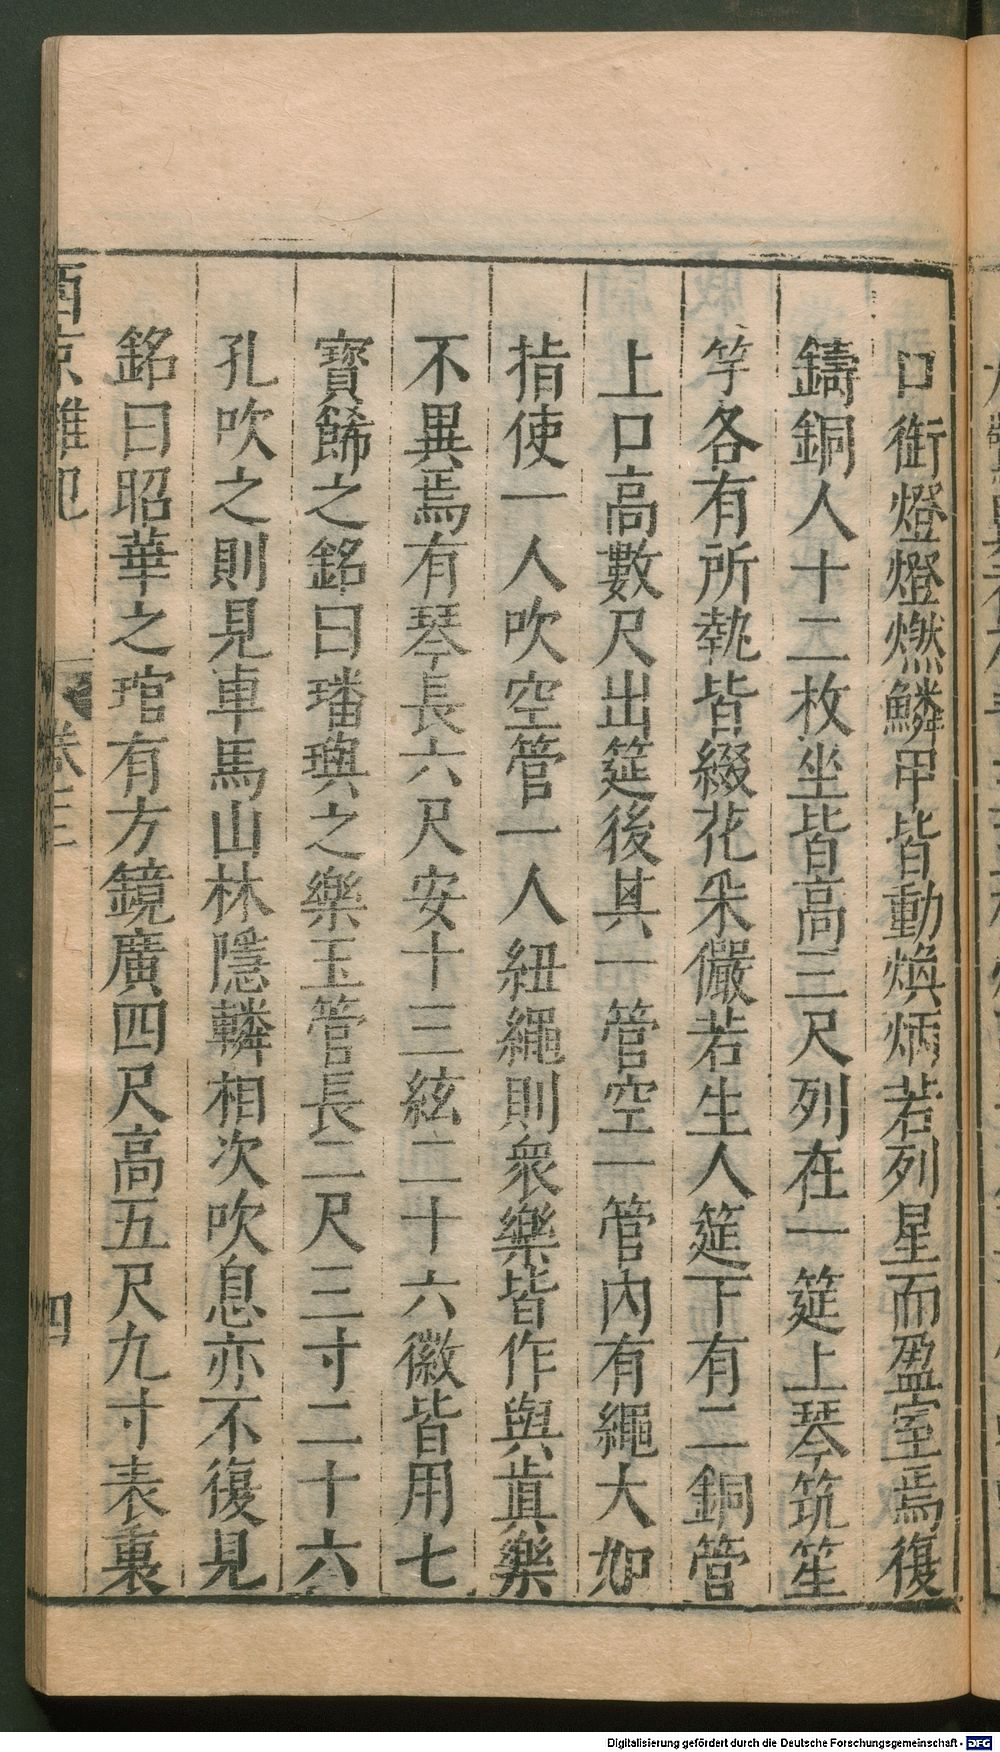 口銜燈燈燃鱗甲皆動煥炳若列星而盈室焉復
鑄銅人十二枚坐皆高三尺列在一筵上琴筑笙
竽各有所執皆綴花采儼若生人筵下有二銅管
上口高數尺出筵後其一管空一管內有繩大如
指使一人吹空管一人紐繩則衆樂皆作與眞樂
不異焉有琴長六尺安十三絃二十六徽皆用七
寶餙之銘曰璠璵之樂玉管長二尺三寸二十六
孔吹之則見車馬山林隱轔相次吹息亦不復見
銘曰昭華之琯有方鏡廣四尺高五尺九寸表裏
西京雜記 卷三 四
Digitalisierung gefördert durch die Deutsche Forschungsgemeinschaft - DFG